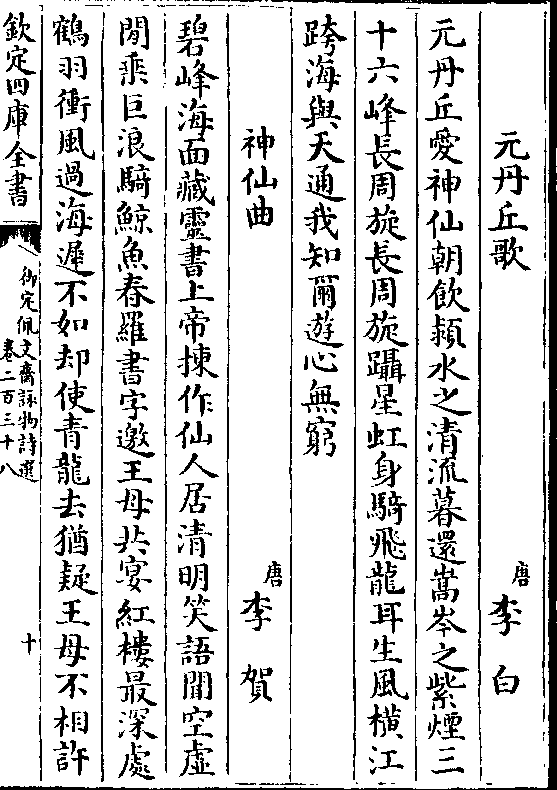 元丹丘歌
唐李白
元丹丘愛神仙朝飲潁水之清流暮還嵩岑之紫煙三
十六峰長周旋長周旋躡星虹身騎飛龍耳生風橫江
跨海與天通我知爾遊心無窮
神仙曲
唐李賀
碧峰海面藏靈書上帝揀作仙人居清明笑語聞空虛
閒乘巨浪騎鯨魚春羅書字邀王母共宴紅樓最深處
鶴羽衝風過海遲不如却使青龍去猶疑王母不相許
欽定四庫全書
御定佩文齋詠物詩選
卷二百三十八
十